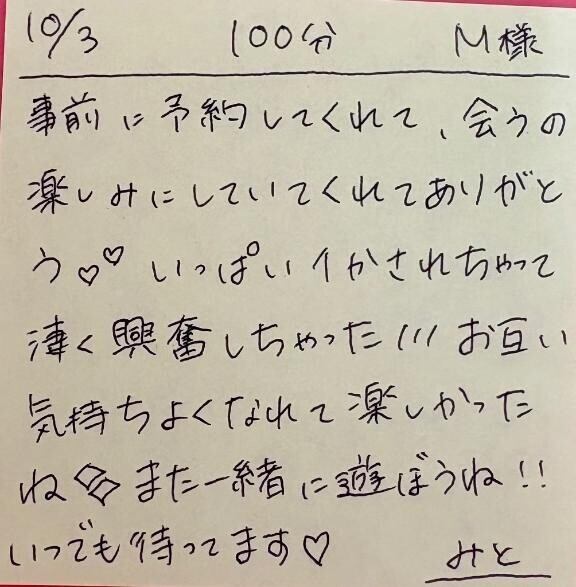 10/3 100分 M様
事前に予約してくれて、会うの
楽しみにしていてくれてありがと
う♡♡ いっぱいイかされちゃって
凄く興奮しちゃった/// お互い
気持ちよくなれて楽しかった
ね また一緒に遊ぼうね!!
いつでも待ってます♡ みと